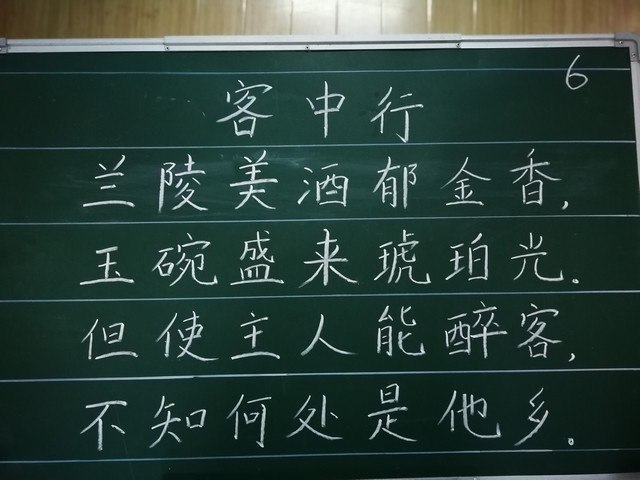 6
客中行
兰陵美酒郁金香,
玉碗盛来琥珀光.
但使主人能醉客,
不知何处是他乡。